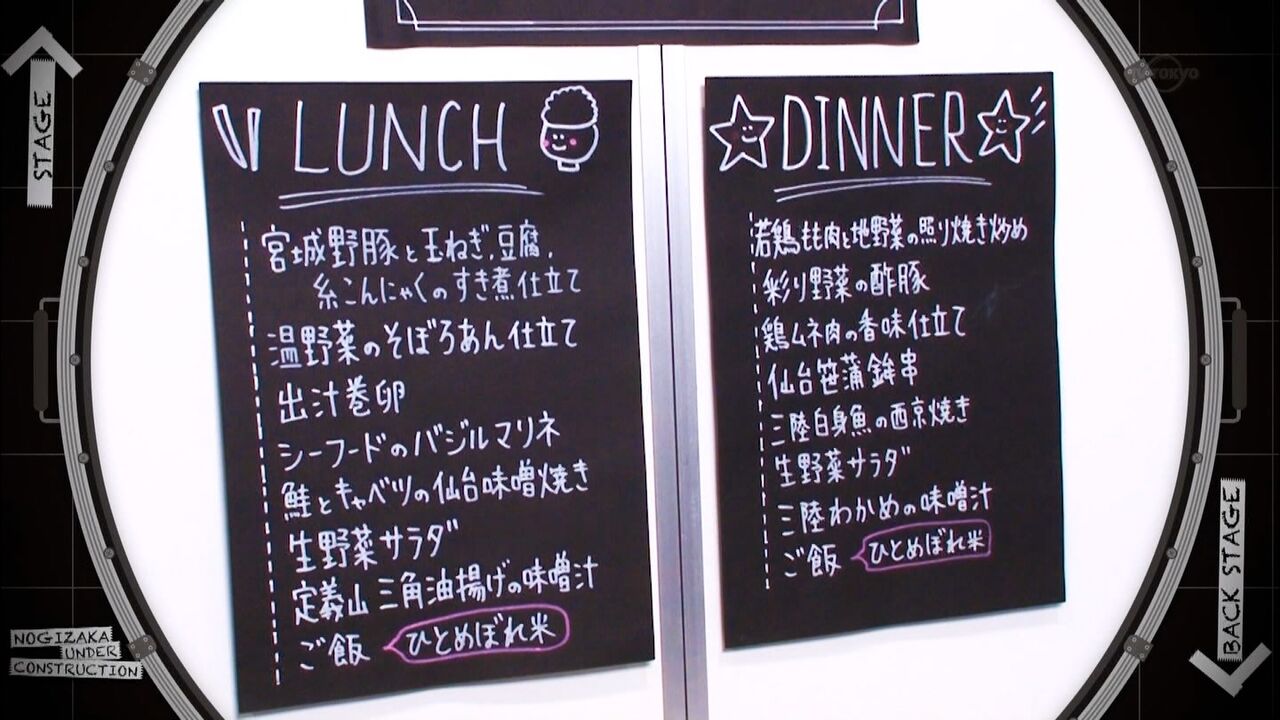 STAGE
LUNCH
宮城野豚と玉ねぎ、豆腐、
糸こんにゃくのすき煮仕立て
温野菜のそぼろあん仕立て
出汁巻卵
シーフードのバジルマリネ
鮭とキャベツの仙台味噌焼き
生野菜サラダ
定義山 三角油揚げの味噌汁
ご飯
ひとめぼれ米
DINNER
若鶏もも肉と地野菜の照り焼き炒め
彩り野菜の酢豚
鶏ムネ肉の香味仕立て
仙台笹蒲鉾串
三陸白身魚の西京焼き
生野菜サラダ
三陸わかめの味噌汁
ご飯
ひとめぼれ米
NOGIZAKA
UNDER
CONSTRUCTION
BACK STAGE